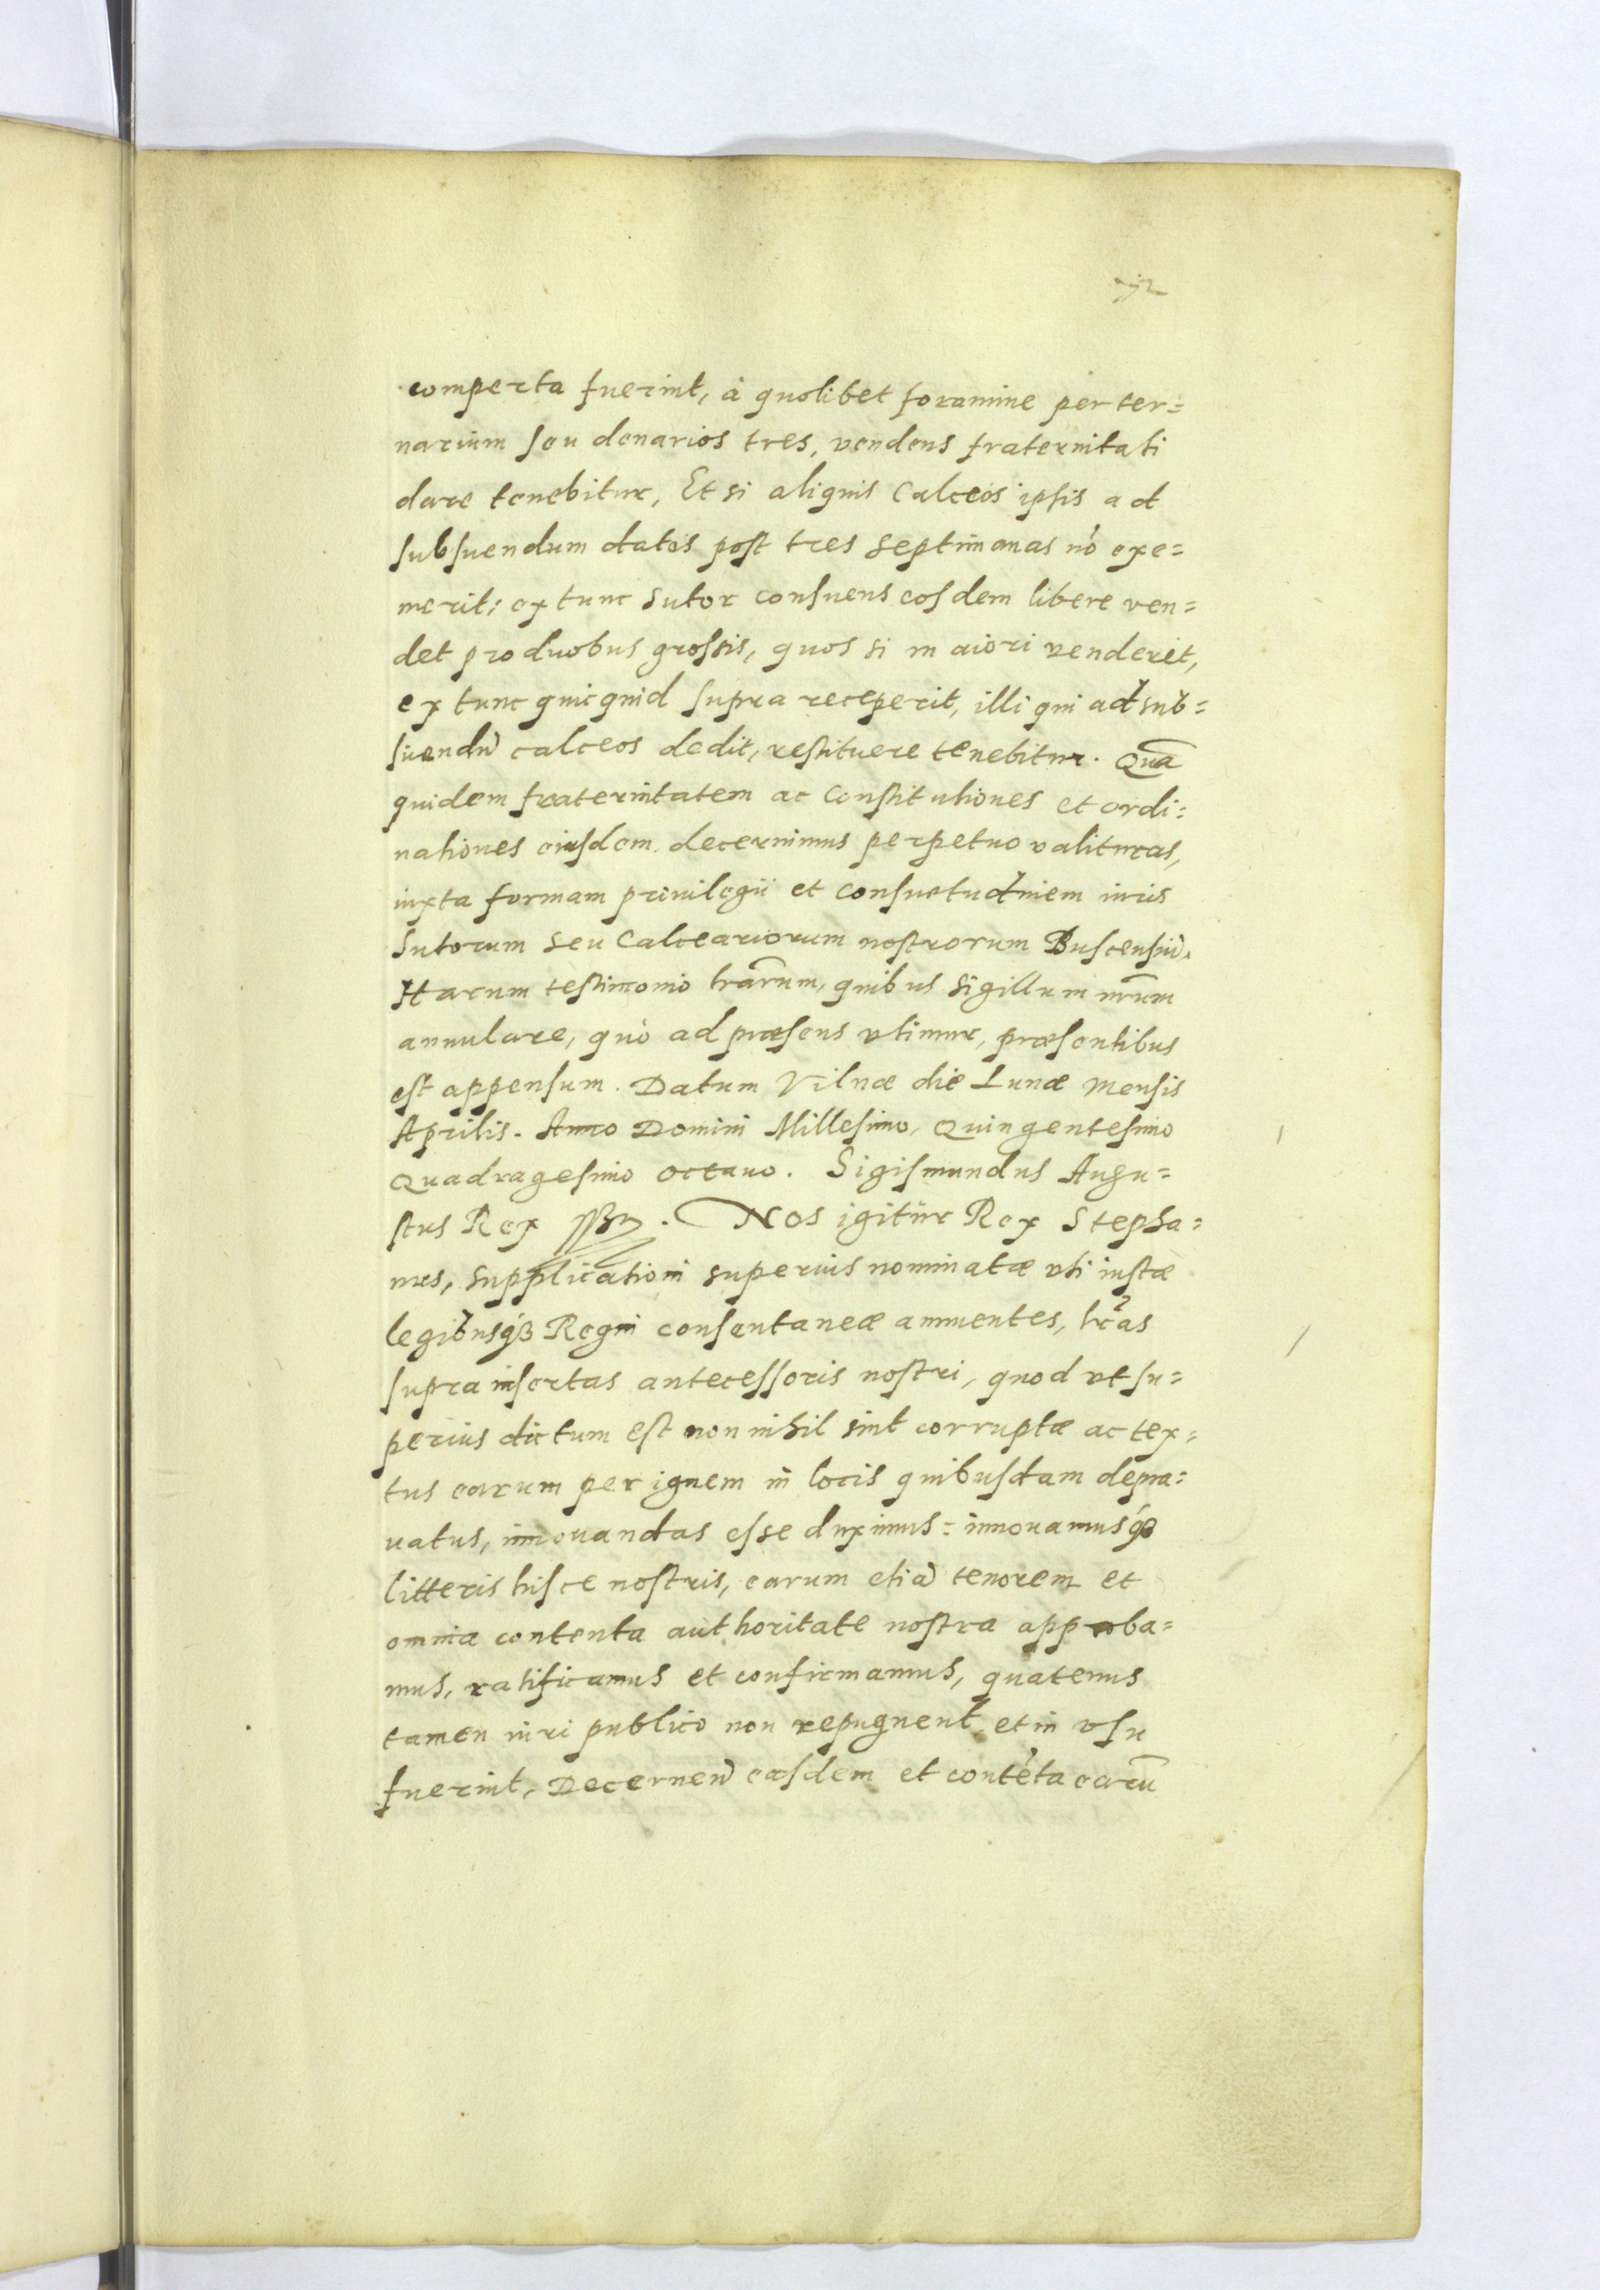 comperta fuerint, à quolibet foramine per ter=
narium seu denarios tres, vendens fraternitati
dare tenebitur, Et si aliquis Calceos ipsis ad
subsuendum datos post tres septimanas nõ exe=
merit; ex tunc sutor consuens eosdem libere ven=
det pro duobus grossis, quos si maiori venderet,
ex tunc quicquid supra receperit, illi qui ad sub=
suendũ calceos dedit, restituere tenebitur. Quã
quidem fraternitatem ac Constitutiones et ordi=
nationes eiusdem decernimus perpetuo valituras,
iuxta formam privilegii et consuetudinem iuris
Sutorum seu Calceariorum nostrorum Buscensiũ.
Harum testimonio lrãrum, quibus sigillum nrũm
annulare, quò ad præsens vtimur, præsentibus
est appensum. Datum Vilnæ die Lunæ mensis
Aprilis. Anno Domini Millesimo, Quingentesimo
Quadragesimo octauo. Sigismundus Augu=
stus Rex. Nos igitur Rex Stepha=
nus, supplicationi superius nominatæ vti iustæ
legibusq3 Regni consentaneæ annuentes, lrãs
supra insertas antecessoris nostri, quod vt su=
perius dictum est non nihil sint corruptæ ac tex=
tus earum per ignem in locis quibusdam depra=
uatus, innouandas esse duximus: innouamusq3
litteris hisce nostris, earum etiã tenorem et
omnia contenta authoritate nostra approba=
mus, ratificamus et confirmamus, quatenus
tamen iuri publico non repugnent et in vsu
fuerint, Decernen̄ easdem et contẽta earũ